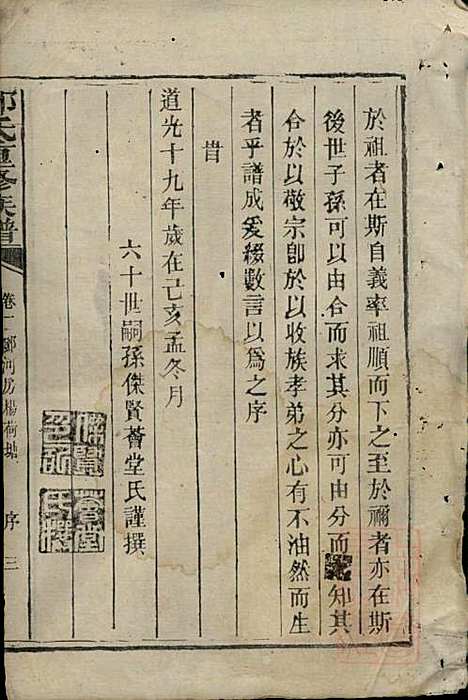 於祖者在斯自義率祖順而下之至於禰者亦在斯
後世子孫可以由合而求其分亦可由分而知其
合於以敬宗卽於以收族孝弟之心有不油然而生
者乎譜成爰綴數言以爲之序
旹
道光十九年歲在己亥孟冬月
六十世嗣孫傑賢薈堂氏謹撰
氏重修族譜
卷一
序
三